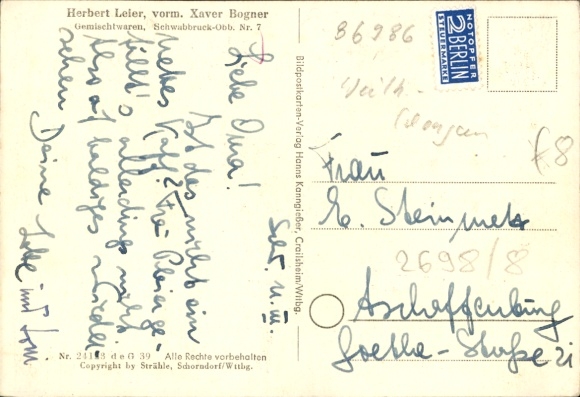 Herbert Leier, vorm. Xaver Bogner
Gemischtwaren, Schwabbruck-Obb. Nr. 7
Liebe Oma!
Ist das nicht ein
nettes Kaff?
allerdings nicht
Also auf baldiges Wieder-
sehen Deine
Nr. 24 de G 39 Alle Rechte vorbehalten
Copyright by Strähle, Schorndorf/Wttbg.
Bildpostkarten-Verlag Hanns Kanngießer, Crailsheim/Wttbg.
86986
NOTOPFER
2 BERLIN
STEUERMARKE
Frau
E. Steinmetz
2698/8
Aschaffenburg
Goethe-Straße 21